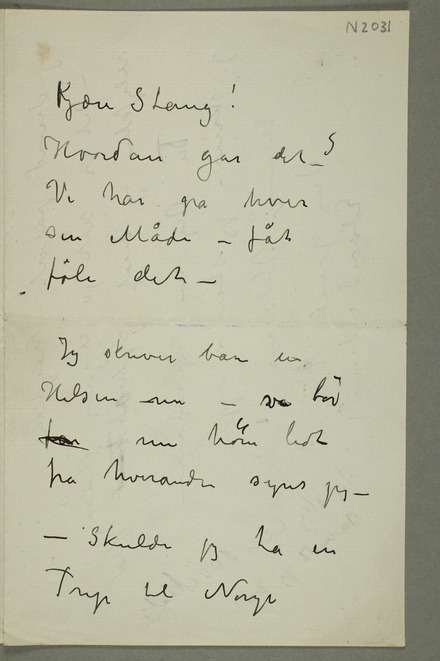 N2031
Kjære Stang!
Hvordan går det –?
Vi har på hver
sin Måde – fåt
føle det –
Jeg skriver bare en
Hilsen nu – vi bør
nu høre lidt
fra hverandre synes jeg –
– Skulde jeg ha en
Trip til Norge